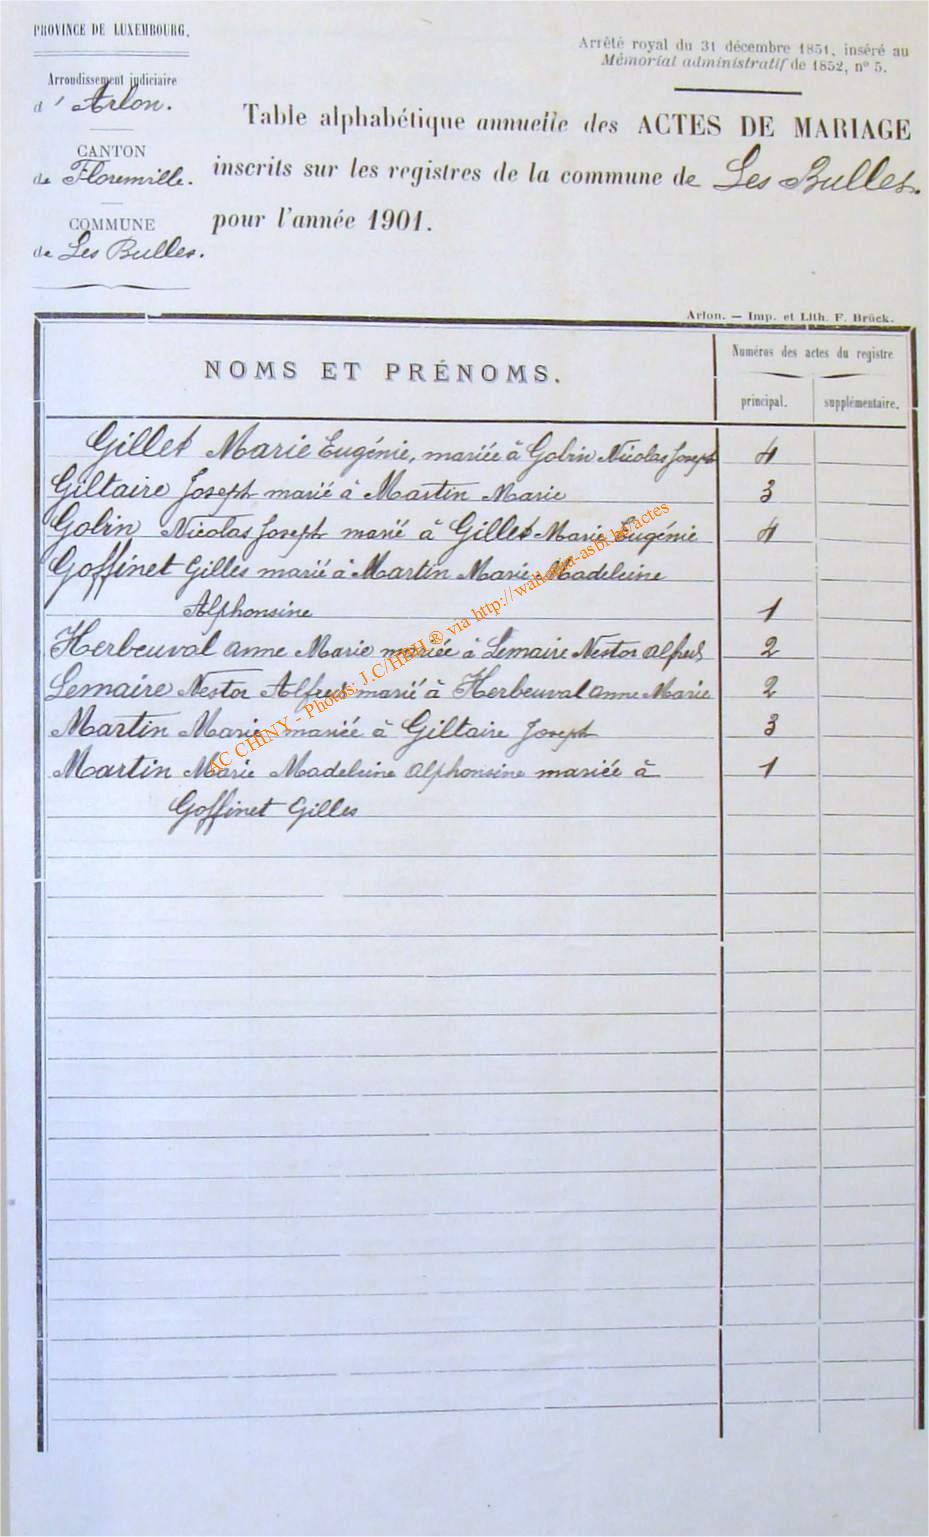 PROVINCE DE LUXEMBOURG.
Arrêté royal du 31 décembre 1851, inséré au
Mémorial administratif de 1852, n° 5.
Arrondissement judiciaire
d'Arlon.
CANTON
de Florenville.
COMMUNE
de Les Bulles.
Table alphabétique annuelle des ACTES DE MARIAGE
inscrits sur les registres de la commune de Les Bulles.
pour l'année 1901.
Arlon. — Imp. et Lith. F. Brück.
NOMS ET PRÉNOMS.
Numéros des actes du registre
principal. supplémentaire.
Gillet Marie Eugénie, mariée à Gobin Nicolas Joseph 4
Giltaire Joseph marié à Martin Marie 3
Gobin Nicolas Joseph marié à Gillet Marie Eugénie 4
Goffinet Gilles marié à Martin Marie Madeleine
Alphonsine 1
Herbeuval Anne Marie mariée à Lemaire Nestor Alfred 2
Lemaire Nestor Alfred marié à Herbeuval Anne Marie 2
Martin Marie mariée à Giltaire Joseph 3
Martin Marie Madeleine Alphonsine mariée à 1
Goffinet Gilles
AC CHINY - Photos: J.C/HBH ® via http://wallonia-asbl.be/actes